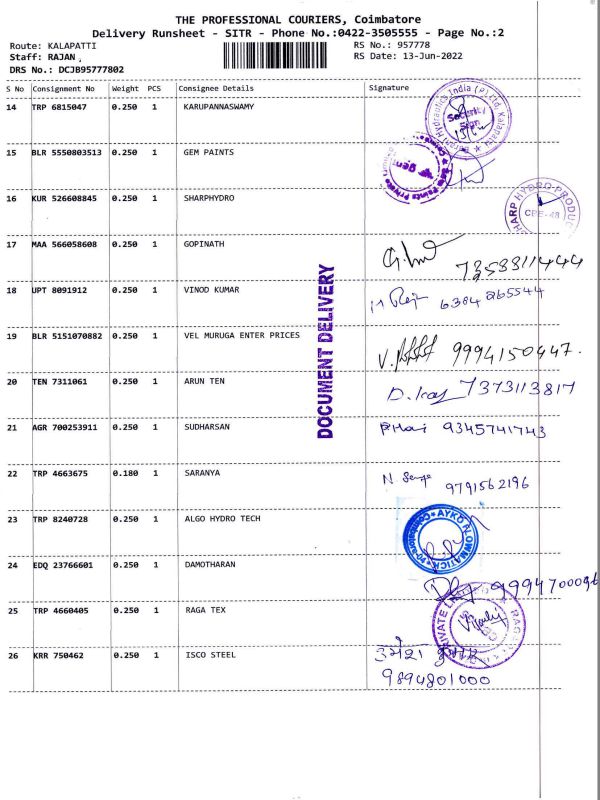 THE PROFESSIONAL COURIERS, Coimbatore
Delivery Runsheet - SITR - Phone No.:0422-3505555 - Page No.:2
Route: KALAPATTI RS No.: 957778
Staff: RAJAN , RS Date: 13-Jun-2022
DRS No.: DCJB95777802
S No Consignment No Weight PCS Consignee Details Signature
14 TRP 6815047 0.250 1 KARUPANNASWAMY
Hydraulics India (P) Ltd,
Security
Sign
15 BLR 5550803513 0.250 1 GEM PAINTS
Paints Private Limited
gem
16 KUR 526608845 0.250 1 SHARPHYDRO
SHARP HYDRO PRODUC
CBE-48
17 MAA 566058608 0.250 1 GOPINATH
7358311444
18 UPT 8091912 0.250 1 VINOD KUMAR
6384 265544
DOCUMENT DELIVERY
19 BLR 5151070882 0.250 1 VEL MURUGA ENTER PRICES
9994150447.
20 TEN 7311061 0.250 1 ARUN TEN
7373113817
21 AGR 700253911 0.250 1 SUDHARSAN
9345741743
22 TRP 4663675 0.180 1 SARANYA
9791562196
23 TRP 8240728 0.250 1 ALGO HYDRO TECH
24 EDQ 23766601 0.250 1 DAMOTHARAN
9994700096
25 TRP 4660405 0.250 1 RAGA TEX
26 KRR 750462 0.250 1 ISCO STEEL
9894801000